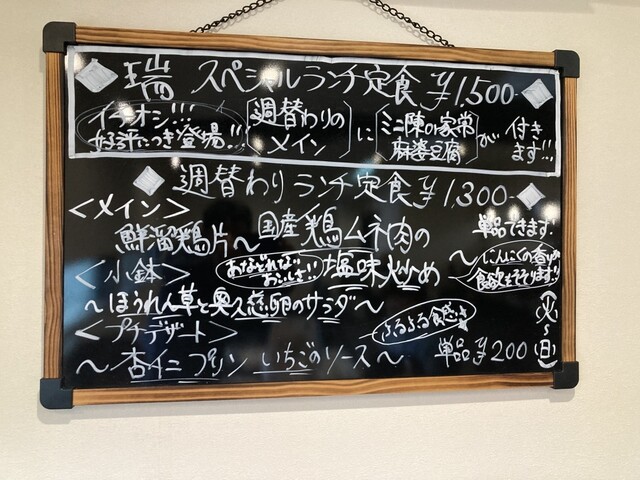 瑞 スペシャルランチ定食 ¥1,500-
イチオシ!!!
好評につき登場!!
週替わりの
メイン
に
ミニ陳or家常
麻婆豆腐
が
付き
ます!!
週替わり ランチ定食 ¥1,300-
<メイン>
鮮溜鶏片～国産鶏ムネ肉の
塩味炒め～
単品できます!
にんにくの香りが
食欲をそそります!!
<小鉢>
あなどれない
おいしさ!!
～ほうれん草と奥久慈卵のサラダ～
<プチデザート>
ふるふる食感♪
～杏仁プリン いちごのソース～
単品¥200
(火～日)